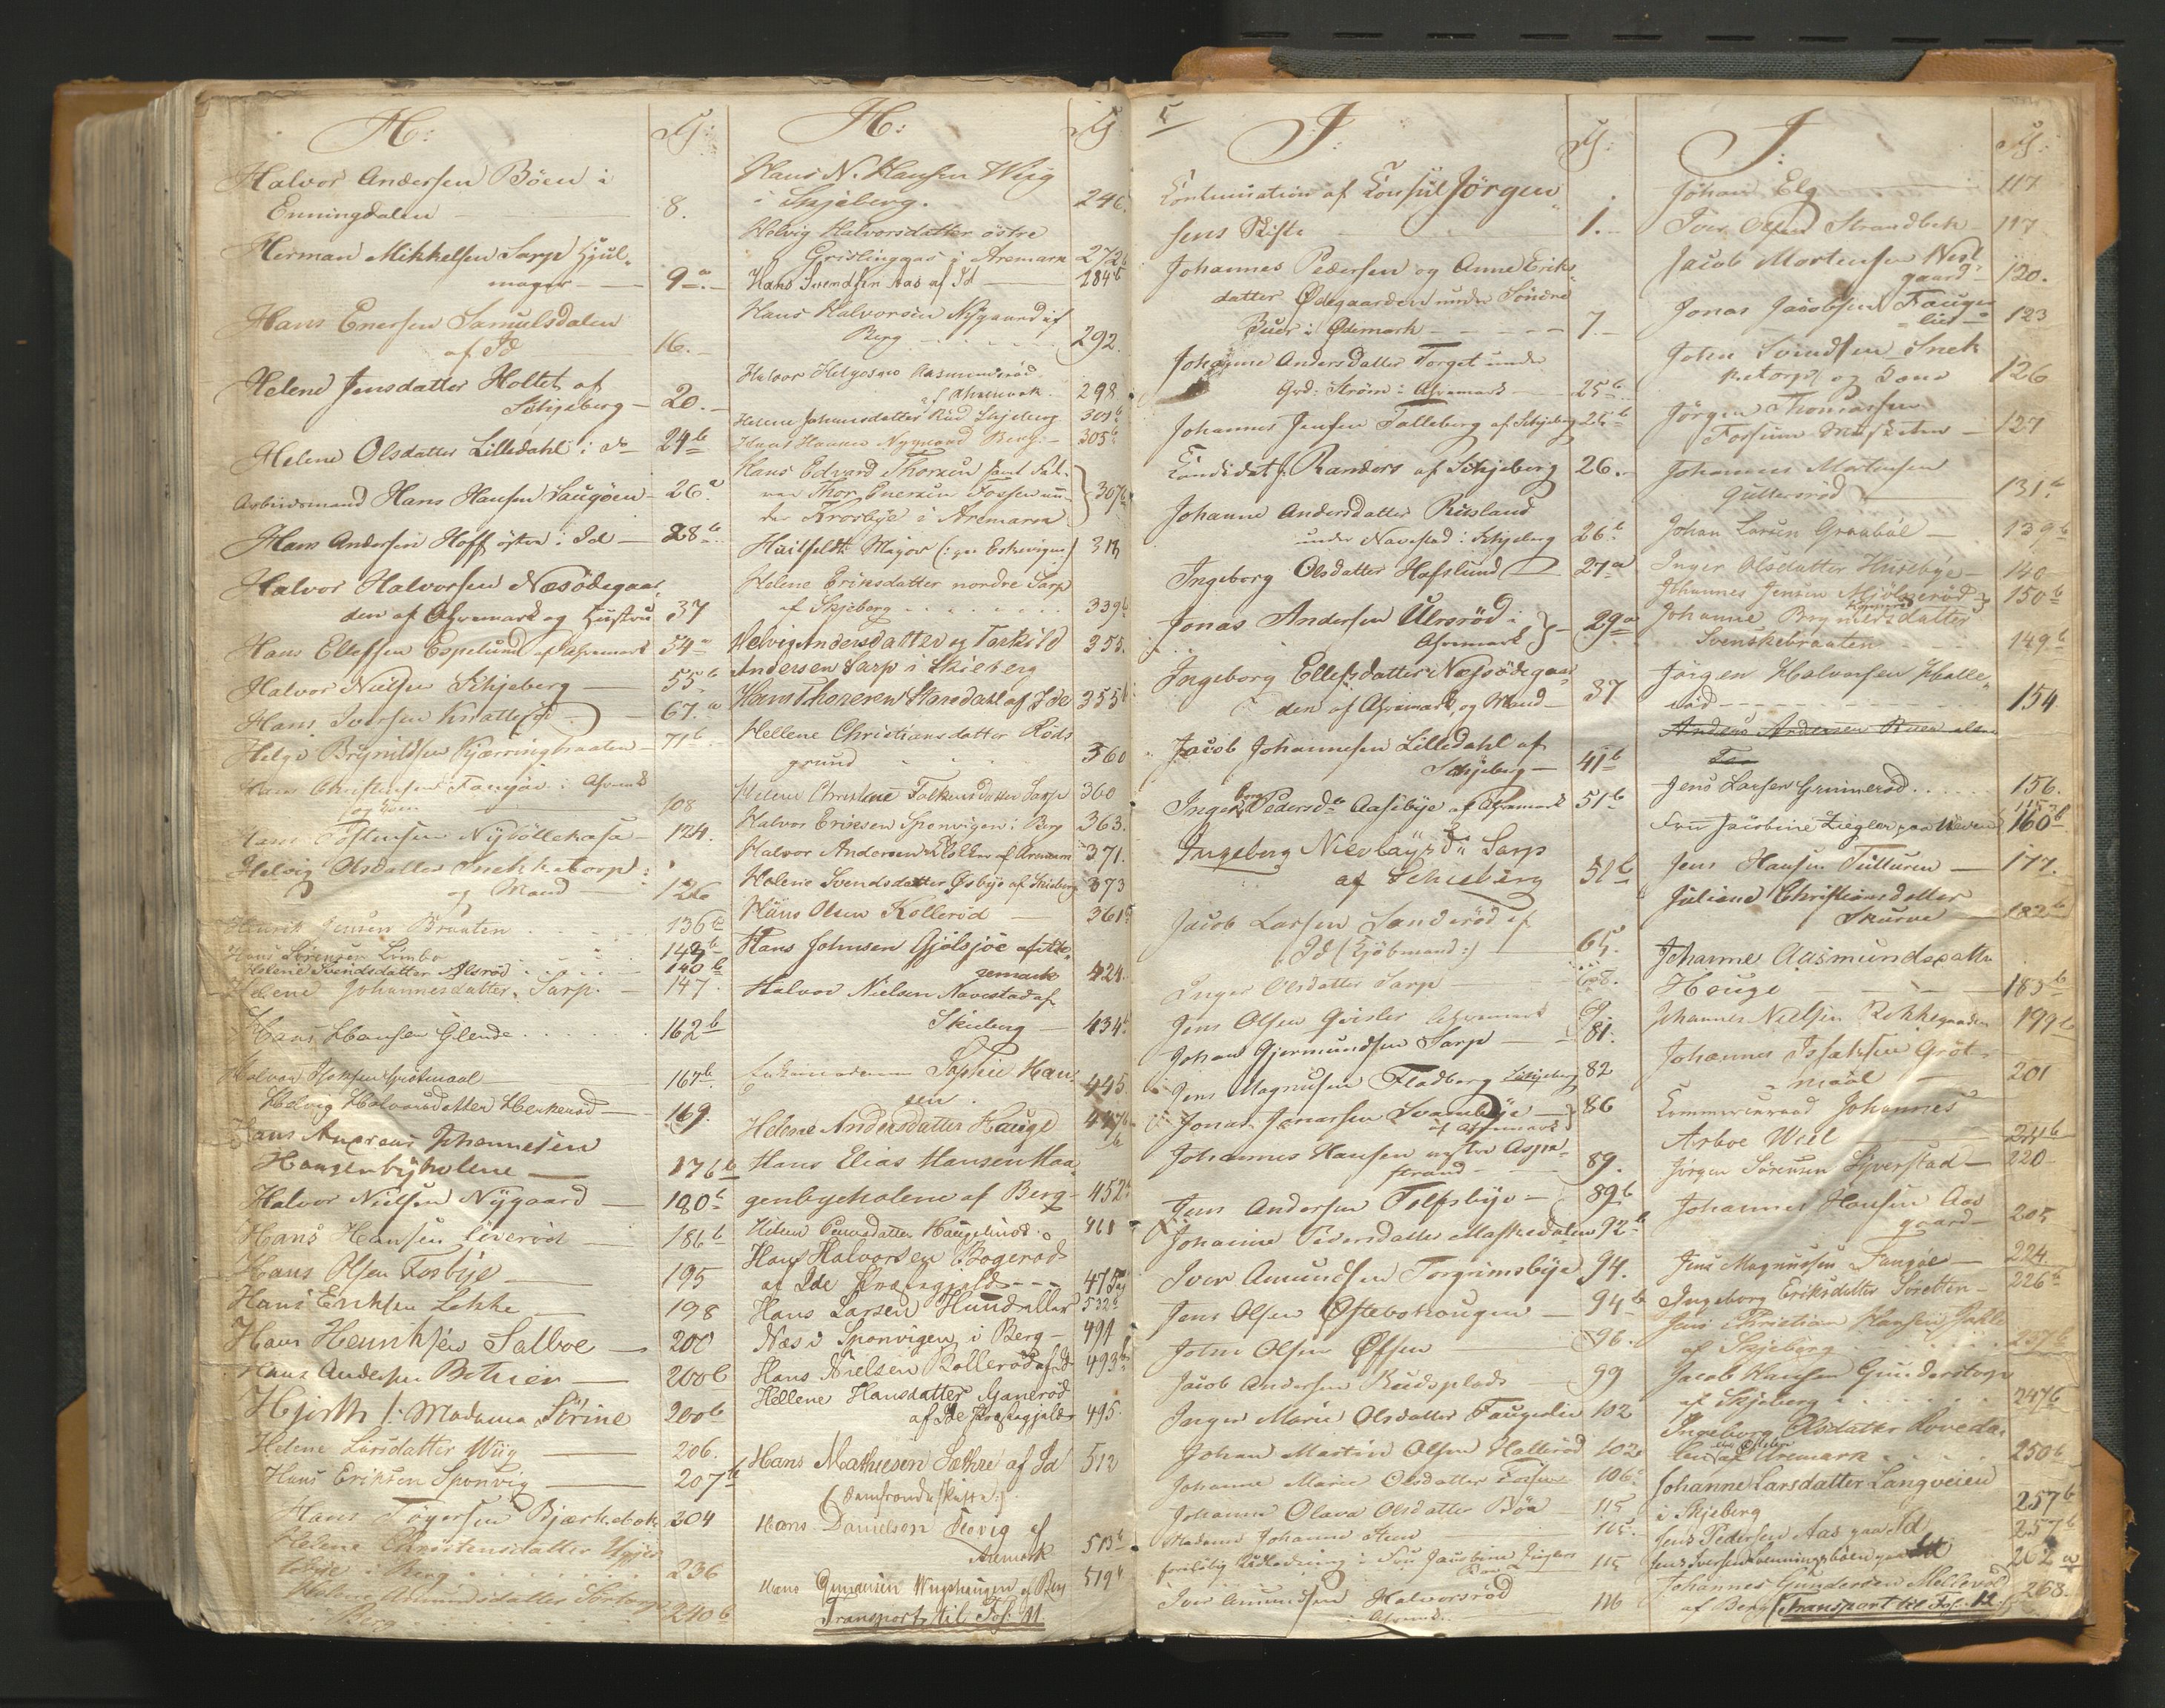 H:
Halvor Andersen Böen i
Enningdalen 8.
Herman Mikkelsen Sarp Hjul-
mager 9a
Hans Enersen Samuelsdalen
af Id 16.
Helene Jensdatter Holtet af
Schjeberg 20.
Helene Olsdatter Lilledahl i do 24b
Arbeidsmand Hans Hansen Saugöen 26a
Hans Andersen Hoff östre i Id 28b
Halvor Halvorsen Næsödegaar-
den af Ahremark og Hustru 37
Hans Ellefsen Espelund af Ahremark 54a
Halvor Nielsen Schjeberg 55b
Hans Iversen 67a
Helge Brynildsen Kjærringbraaten 71b
Hans Christensen Fangöe i Ahremk
108
Hans Tostensen 124.
Helvig Olsdatter Snekketorp
og Mand 126
Henrik Jensen Braaten 136b
Hans Sörensen Limbo 149b
Helene Svendsdatter Alsröd 140b
Helene Johannesdatter Sarp 147.
Hans Hansen Glende 162b
Halvor Isaksen Grötmaal 167b
Helvig Halvorsdatter Herkeröd 169.
Hans Andreas Johannesen
Haugenbyeholene 176b
Halvor Nielsen Nygaard 180b
Hans Hansen Liveröd 186b
Hans Olsen Fosbye 195
Hans Eriksen Lekke 198
Hans Henriksen Salboe 200
Hans Andersen 200b
Hjorth /: Madame Sörine 200b
Helene Larsdatter Wiig 206.
Hans Eriksen Sponvig 207b
Hans Töyersen Bjærkebak 204
Helene Christensdatter
i Berg 236
Amundsdatter Sörtorp
i Berg 240b
H:
Hans N. Hansen Wiig
i Skjeberg. 246.
Helvig Halvorsdatter östre
Grislinggaas i Aremark 272b
Hans Svendsen Aas af Id 284b
Hans Halvorsen Nygaard af
Berg 292.
Halvor Helgesen Aasmunderöd
af Ahremark 298
Helene Johannesdatter Rud Skjeberg 301b
Hans Hansen Nygaard Berg 305b
Hans Edvard Thoresen samt Fa-
der Thor Enersen Fossen un-
der Krosbye i Aremark 307b
Huitfeldt Major 313
Helene Eriksdatter nordre Sarp
af Skjeberg 339b
Helvig Andersdatter og Tarkild
Andersen Sarp i Skieberg 355.
Hans Thoresen Stansdahl af Ide 355b
Hellene Christiansdatter Röds
grund 360
Helene Christine Falkensdatter Sarp 360
Halvor Eriksen Sponvigen i Berg 363.
Halvor Andersen af Aremark 371.
Helene Svendsdatter Osbye af Skieberg 373
Hans Olsen Kolleröd 361b
Hans Johnsen Gjölsjöe af
remark 424.
Halvor Nielsen Navestad af
Skieberg 434b
Sophie Han-
sen. 445
Helene Andersdatter Hauge 447b
Hans Elias Hansen Haa-
genbyeholene af Berg 452b
Helene Pedersdatter Haugelund 461
Hans Halvorsen Bogeröd
af Ide Præstegjeld 475b
Hans Larsen Hundallar 532b
Næs i Sponvigen i Berg 499
Hans Nielsen Kolleröd af Id 493b
Hellene Hansdatter Ganeröd
af Ide Præstegjeld 495.
Hans Mathiesen Sæthre af Id 512
(Samfrændeskifte:)
Hans Danielsen Flövig af
Aremark 515b
Hans Gundersen af Berg 519b
Transport til Fol: 11
5
I:
Continuation af Consul Jörgen-
sens Skifte 1.
Johannes Pedersen og Anne Eriks-
datter Ødegaarden under Söndre
Buer i Ødemark 7.
Johanne Andersdatter Torget under
Grd: Ström i Ahremark 25b
Johannes Jensen Talleberg af Schjeberg 26b
Candidat J: Randers af Schjeberg 26.
Johanne Andersdatter Rusland
under Navestad i Schjeberg 26b
Ingeborg Olsdatter Hafslund 27a
Jonas Andersen Ulvsröd i
Ahremark 29a
Ingeborg Ellefsdatter Næsödegaar-
den af Ahremark, og Mand 37
Jacob Johannesen Lilledahl af
Schjeberg 41b
Ingeborg Pedersdr Aasebye af Ahremark 51b
Ingeborg Nicolaysdr Sarp
af Schieberg 51b
Jacob Larsen Sanderöd af
Id (Kjöbmand:) 65.
Inger Olsdatter Sarp 68.
Jens Olsen Gvisler Ahremark
Johan Gjermundsen Sarp 81.
Jens Magnusen Fladberg Schjeberg 82
Jonas Jonassen Svambye 86
af Ahremark
Johannes Hansen nestre Aspe-
strand 89.
Jens Andersen Tolfsbye 89b
Johanne Pedersdatter Maskedalen 92b
Iver Amundsen Torgrimsbye 94.
Jens Olsen Østebohaugen 94b
John Olsen Øffsen 96.
Jacob Andersen Rudsplads 99
Inger Marie Olsdatter Faugerlie 102
Johan Martin Olsen Halleröd 102
Johanne Marie Olsdatter Fossum 106
Johanne Olava Olsdatter Böe 115
Madame Johanne 115.
foreløbig Udlodning i Fru Jacobine Ziegler
Boe 115
Iver Amundsen Halvorsröd
i Ahremk. 116
I:
Johan Elg 117
Iver Olsen Strandbek 117
Jacob Mortensen Nest
gaard 120.
Jonas Jacobsen Fauger
lie 123
John Svendsen Snek
ketorp og Sone 126
Jörgen Thomassen
Fossum 127
Johannes Mortensen
Gutteröd 131b
Johan Larsen Graaböl 139b
Inger Olsdatter Husebye 140
Johannes Jensen Mjölneröd 150b
Johanne Brynildsdatter
Svenskebraaten 149b
Jörgen Halvorsen Halle-
röd 154
Anders Andersen
Jens Larsen Grimmeröd 156.
115
Fru Jacobine Ziegler paa Veden 160b
Jens Hansen Tutturen 177.
Juliane Christiansdatter
Skurve 182b
Johanne Aasmundsdatter
Houge 183b
Johannes Nielsen Rokkegaarden 199b
Johannes Isaksen Gröt-
maal 201
Commerceraad Johannes
Arboe Wiel 211b
Jörgen Sörensen Syverstad 220
Johannes Hansen Aas
gaard 205
Jens Magnussen Fangöe 224.
Ingeborg Eriksdatter Sletten 226b
Jens Christian Hansen
af Skjeberg 237b
Jacob Hansen Gunderstorp
af Skjeberg 247b
Ingeborg Olsdatter Loveda-
len af Aremark 250b
Johanne Larsdatter Langveien
i Skjeberg 257b
Jens Pedersen Aas paa Id 257b
Jens Iversen paa Id 262a
Johannes Gundersen Mellevold
af Berg (transport til Fol: 12) 268.